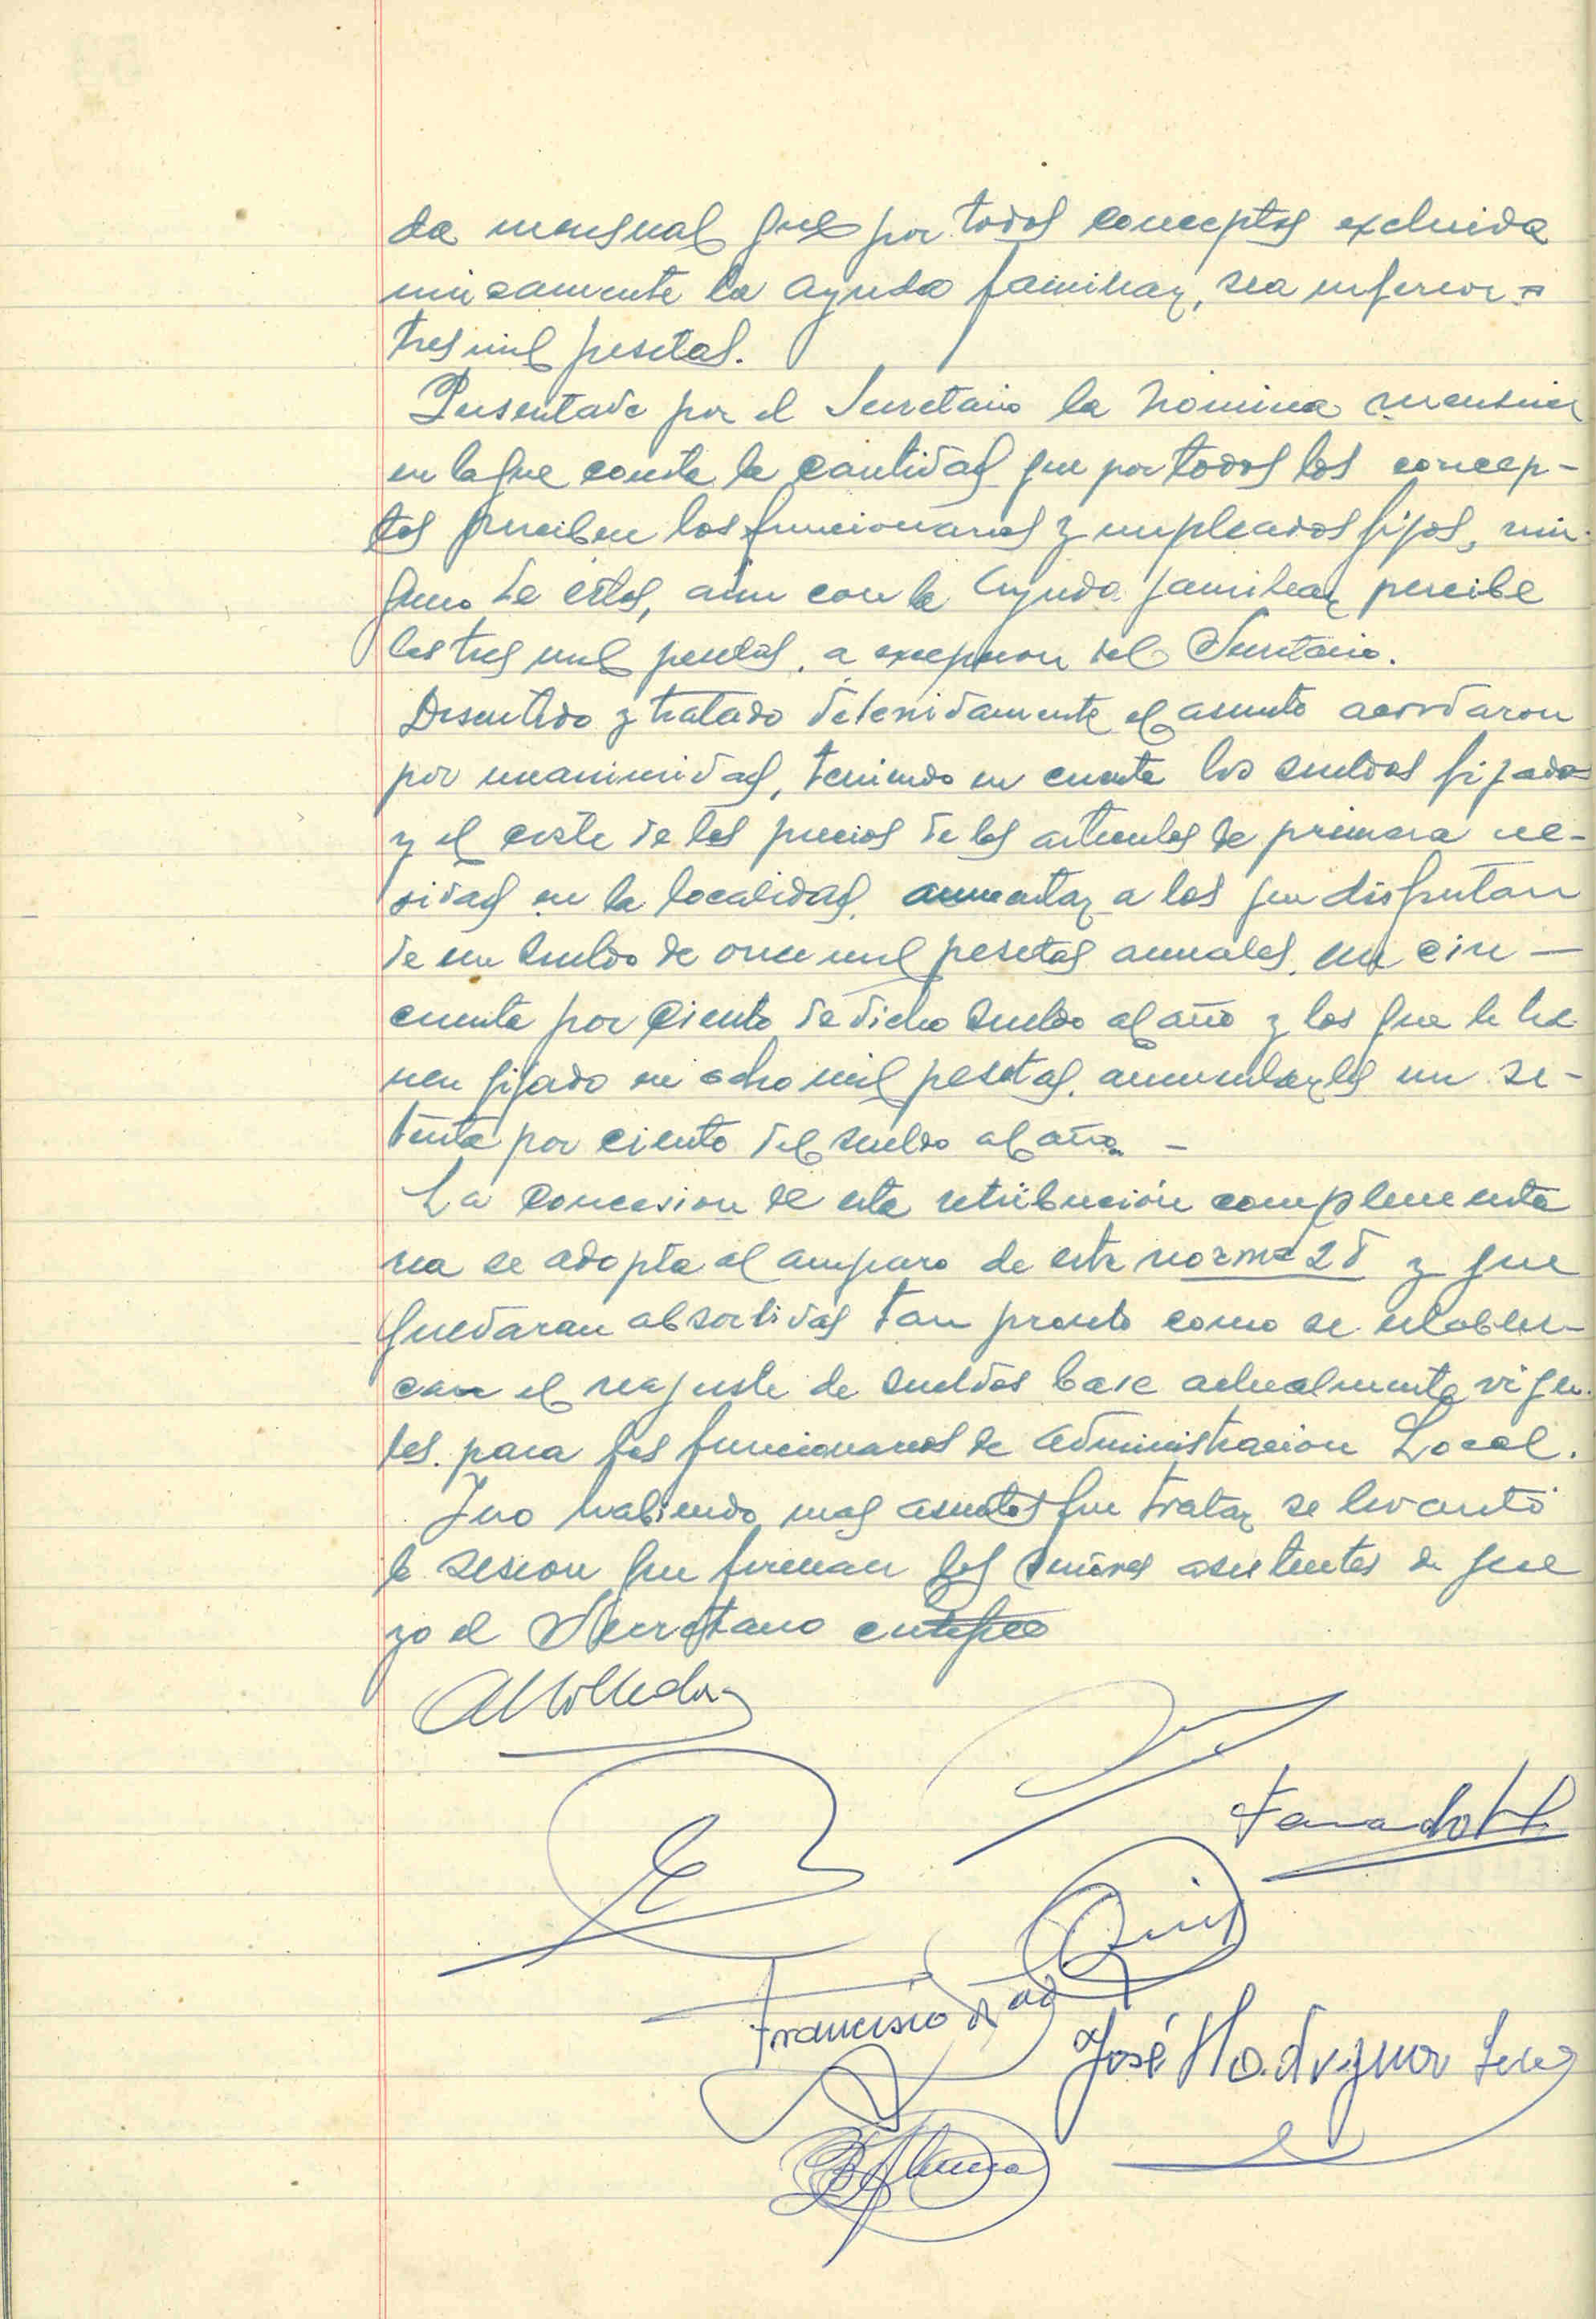 da mensual que por todos conceptos excluida
unicamente la ayuda familiar, sea inferior a
tres mil pesetas.
Presentada por el Secretario la nomina mensual
en la que consta la cantidad que por todos los concep-
tos perciben los funcionarios y empleados fijos, nin-
guno de estos, aun con la ayuda familiar percibe
las tres mil pesetas, a excepcion del Secretario.
Discutido y tratado detenidamente el asunto acordaron
por unanimidad, teniendo en cuenta los sueldos fijados
y el coste de los precios de los articulos de primera ne-
sidad en la localidad, aumentar a los que disfrutan
de un sueldo de once mil pesetas anuales, un cin-
cuenta por ciento de dicho sueldo al año y los que le tie
nen fijado en ocho mil pesetas, aumentarles un se-
tenta por ciento del sueldo al año. -
La concesion de esta retribución complementa
ria se adopta al amparo de esta norma 2ª y que
quedaran absorbidas tan pronto como se establez-
can el reajuste de sueldos base actualmente vigen-
tes para los funcionarios de Administracion Local.
Y no habiendo mas asuntos que tratar se levantó
la sesion que firman los señores asistentes de que
yo el Secretario certifico
Francisco
José